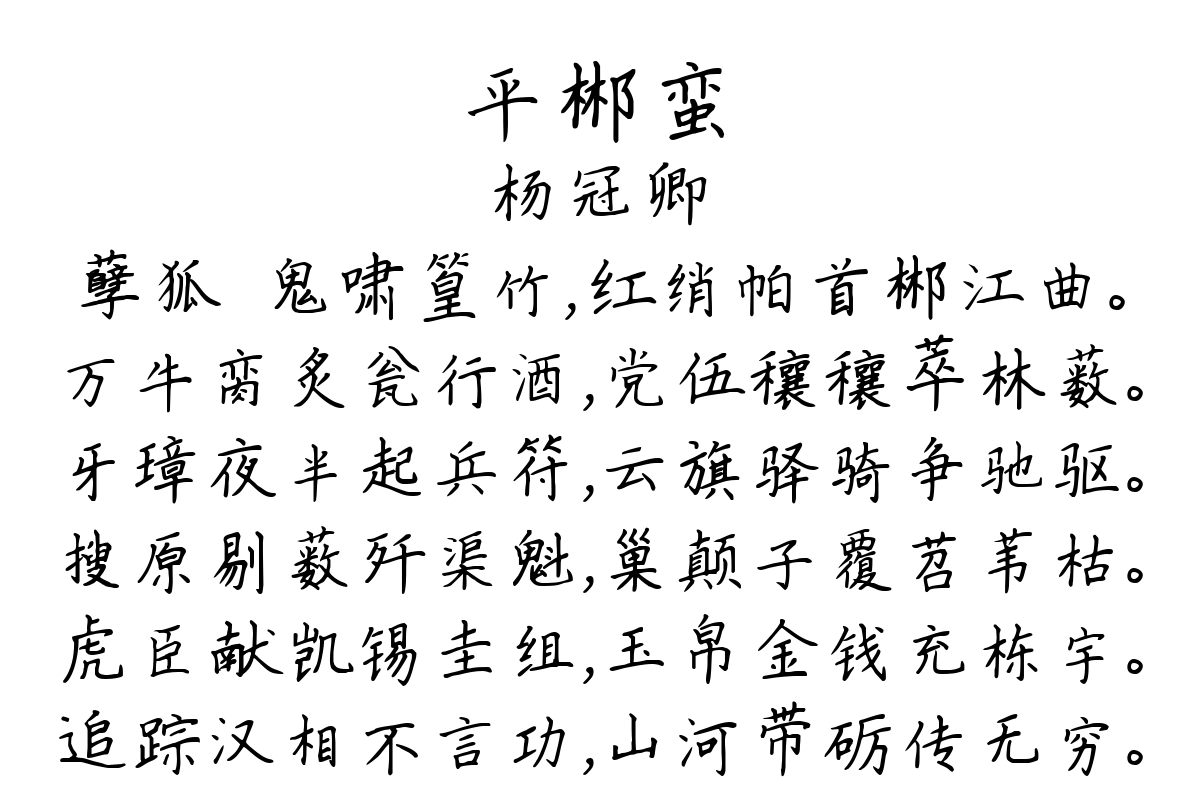 平郴蛮
杨冠卿
孽狐 鬼啸篁竹,红绡帕首郴江曲。
万牛脔炙瓮行酒,党伍穰穰萃林薮。
牙璋夜半起兵符,云旗驿骑争驰驱。
搜原剔薮歼渠魁,巢颠子覆苕苇枯。
虎臣献凯锡圭组,玉帛金钱充栋宇。
追踪汉相不言功,山河带砺传无穷。